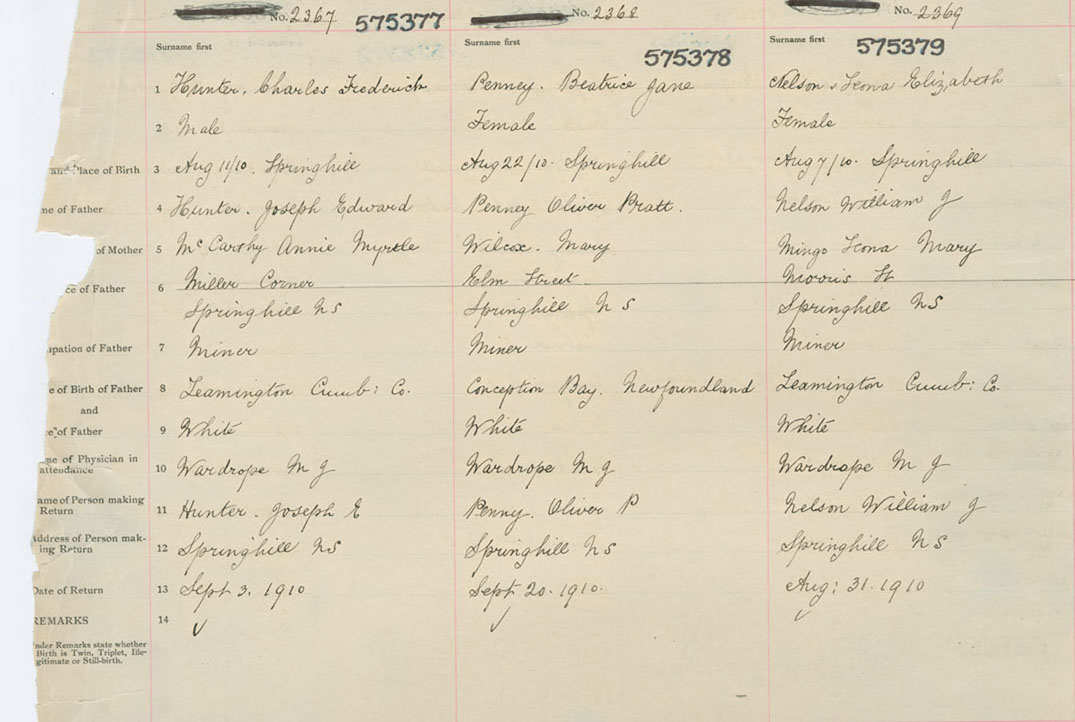 No. 2367 575377 No. 2368 No. 2369
Surname first Surname first 575378 Surname first 575379
1 Hunter. Charles Frederick Penney. Beatrice Jane Nelson, Leona Elizabeth
2 Male Female Female
and Place of Birth 3 Aug 11/10. Springhill Aug 22/10. Springhill Aug 7/10. Springhill
me of Father 4 Hunter. Joseph Edward Penney Oliver Pratt. Nelson William J
of Mother 5 McCarthy Annie Myrtle Wilcox. Mary Mingo Leona Mary
ce of Father 6 Miller Corner Elm Street Morris St
Springhill NS Springhill N S Springhill NS
upation of Father 7 Miner Miner Miner
e of Birth of Father 8 Leamington Cumb: Co. Conception Bay. Newfoundland Leamington Cumb: Co.
and
ce of Father 9 White White White
me of Physician in
attendance 10 Wardrope M J Wardrope M J Wardrope M J
ame of Person making
Return 11 Hunter. Joseph E Penny. Oliver P Nelson William J
Address of Person mak-
ing Return 12 Springhill NS Springhill N S Springhill N S
Date of Return 13 Sept 3. 1910 Sept 20. 1910. Aug: 31. 1910
REMARKS 14
nder Remarks state whether
Birth is Twin, Triplet, Ille-
gitimate or Still-birth.